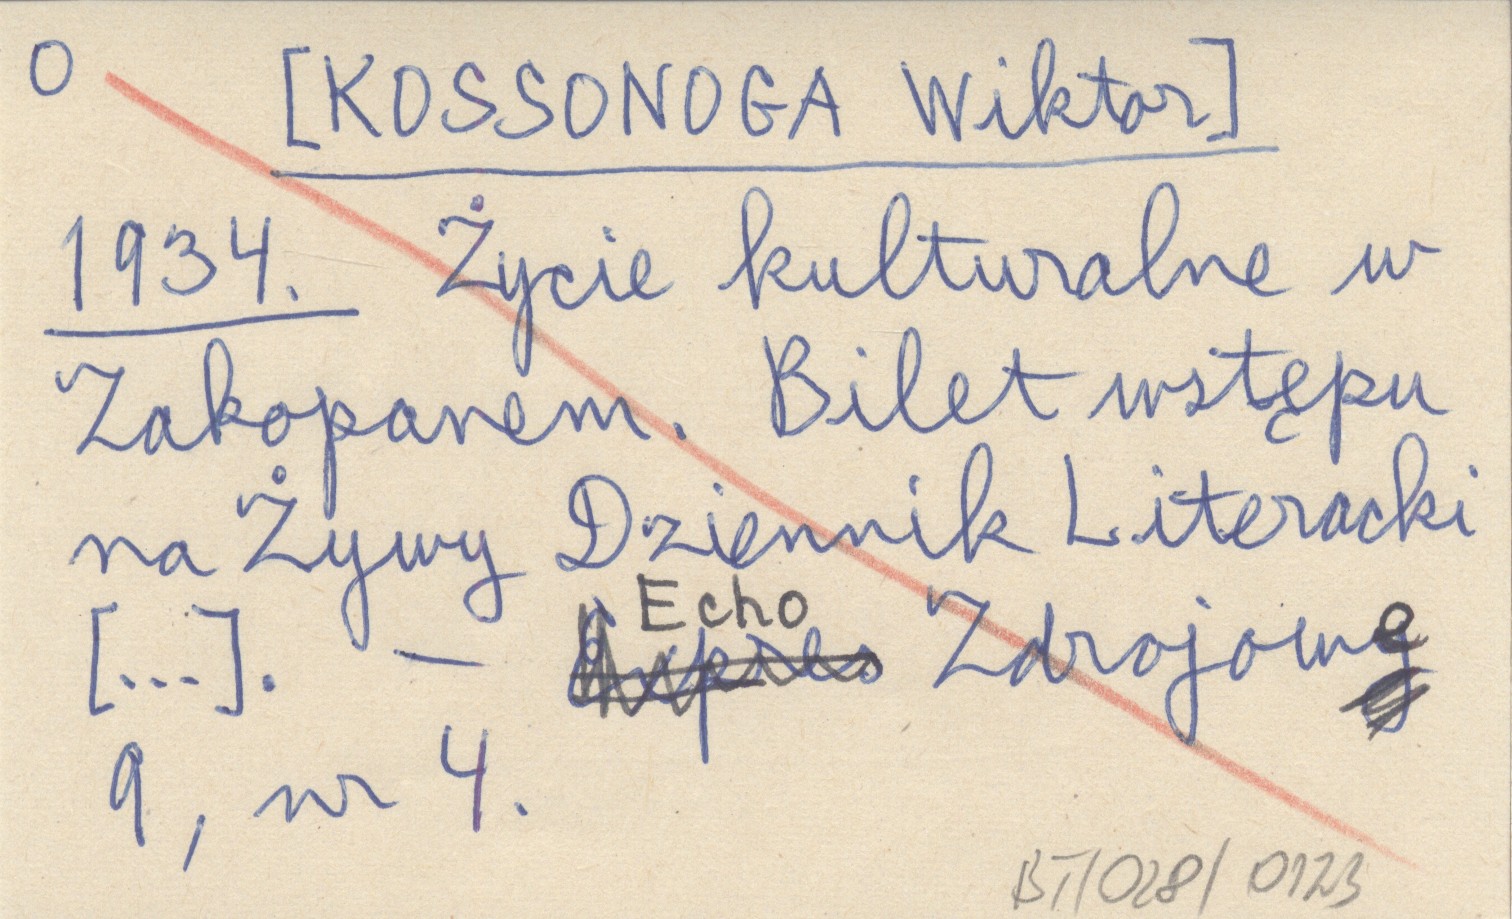 O [KOSSONOGA Wiktor]
1934. Życie kulturalne w
Zakopanem. Bilet wstępu
na Żywy Dziennik Literacki
[...]. — Echo Zdrojowe
9, nr 4.
BT/028/0123